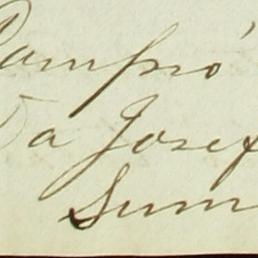 Campió
Da Josef
Sum